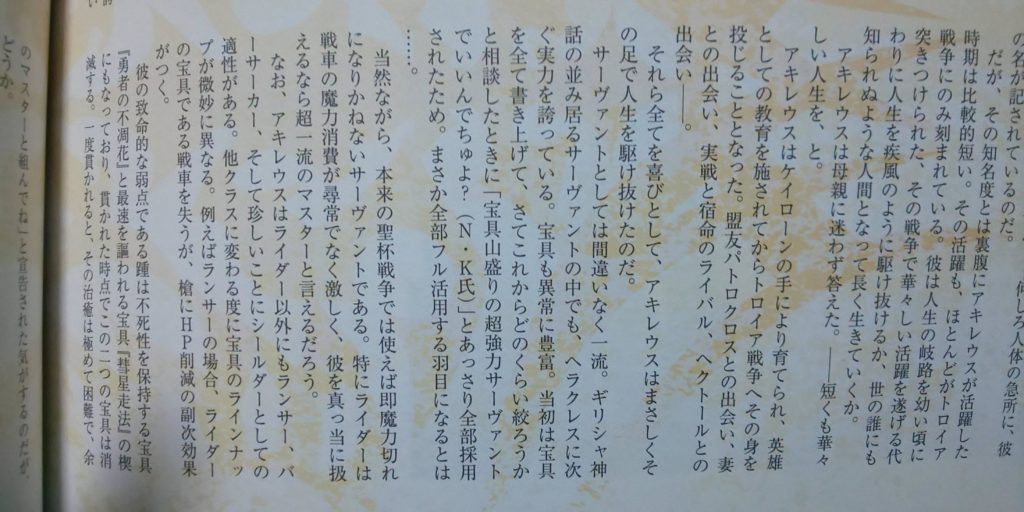 の名が記されているのだ。
何しろ人体の急所に、彼
だが、その知名度とは裏腹にアキレウスが活躍した
時期は比較的短い。その活躍も、ほとんどがトロイア
戦争にのみ刻まれている。彼は人生の岐路を幼い頃に
突きつけられた、その戦争で華々しい活躍を遂げる代
わりに人生を疾風のように駆け抜けるか、世の誰にも
知られぬような人間となって長く生きていくか。
アキレウスは母親に迷わず答えた。――短くも華々
しい人生を、と。
アキレウスはケイローンの手により育てられ、英雄
としての教育を施されてからトロイア戦争へその身を
投じることとなった。盟友パトロクロスとの出会い、妻
との出会い、実戦と宿命のライバル、ヘクトールとの
出会い――。
それら全てを喜びとして、アキレウスはまさしくそ
の足で人生を駆け抜けたのだ。
サーヴァントとしては間違いなく一流。ギリシャ神
話の並み居るサーヴァントの中でも、ヘラクレスに次
ぐ実力を誇っている。宝具も異常に豊富。当初は宝具
を全て書き上げて、さてこれからどのくらい絞ろうか
と相談したときに「宝具山盛りの超強力サーヴァント
でいいんでちゅよ?(N・K氏)」とあっさり全部採用
されたため。まさか全部フル活用する羽目になるとは
……。
当然ながら、本来の聖杯戦争では使えば即魔力切れ
になりかねないサーヴァントである。特にライダーは
戦車の魔力消費が尋常でなく激しく、彼を真っ当に扱
えるなら超一流のマスターと言えるだろう。
なお、アキレウスはライダー以外にもランサー、バ
ーサーカー、そして珍しいことにシールダーとしての
適性がある。他クラスに変わる度に宝具のラインナッ
プが微妙に異なる。例えばランサーの場合、ライダー
の宝具である戦車を失うが、槍にHP削減の副次効果
がつく。
彼の致命的な弱点である踵は不死性を保持する宝具
『勇者の不凋花』と最速を謳われる宝具『彗星走法』の楔
にもなっており、貫かれた時点でこの二つの宝具は消
滅する。一度貫かれると、その治癒は極めて困難で、余
のマスターと組んでね」と宣告された気がするのだが、
どうか。